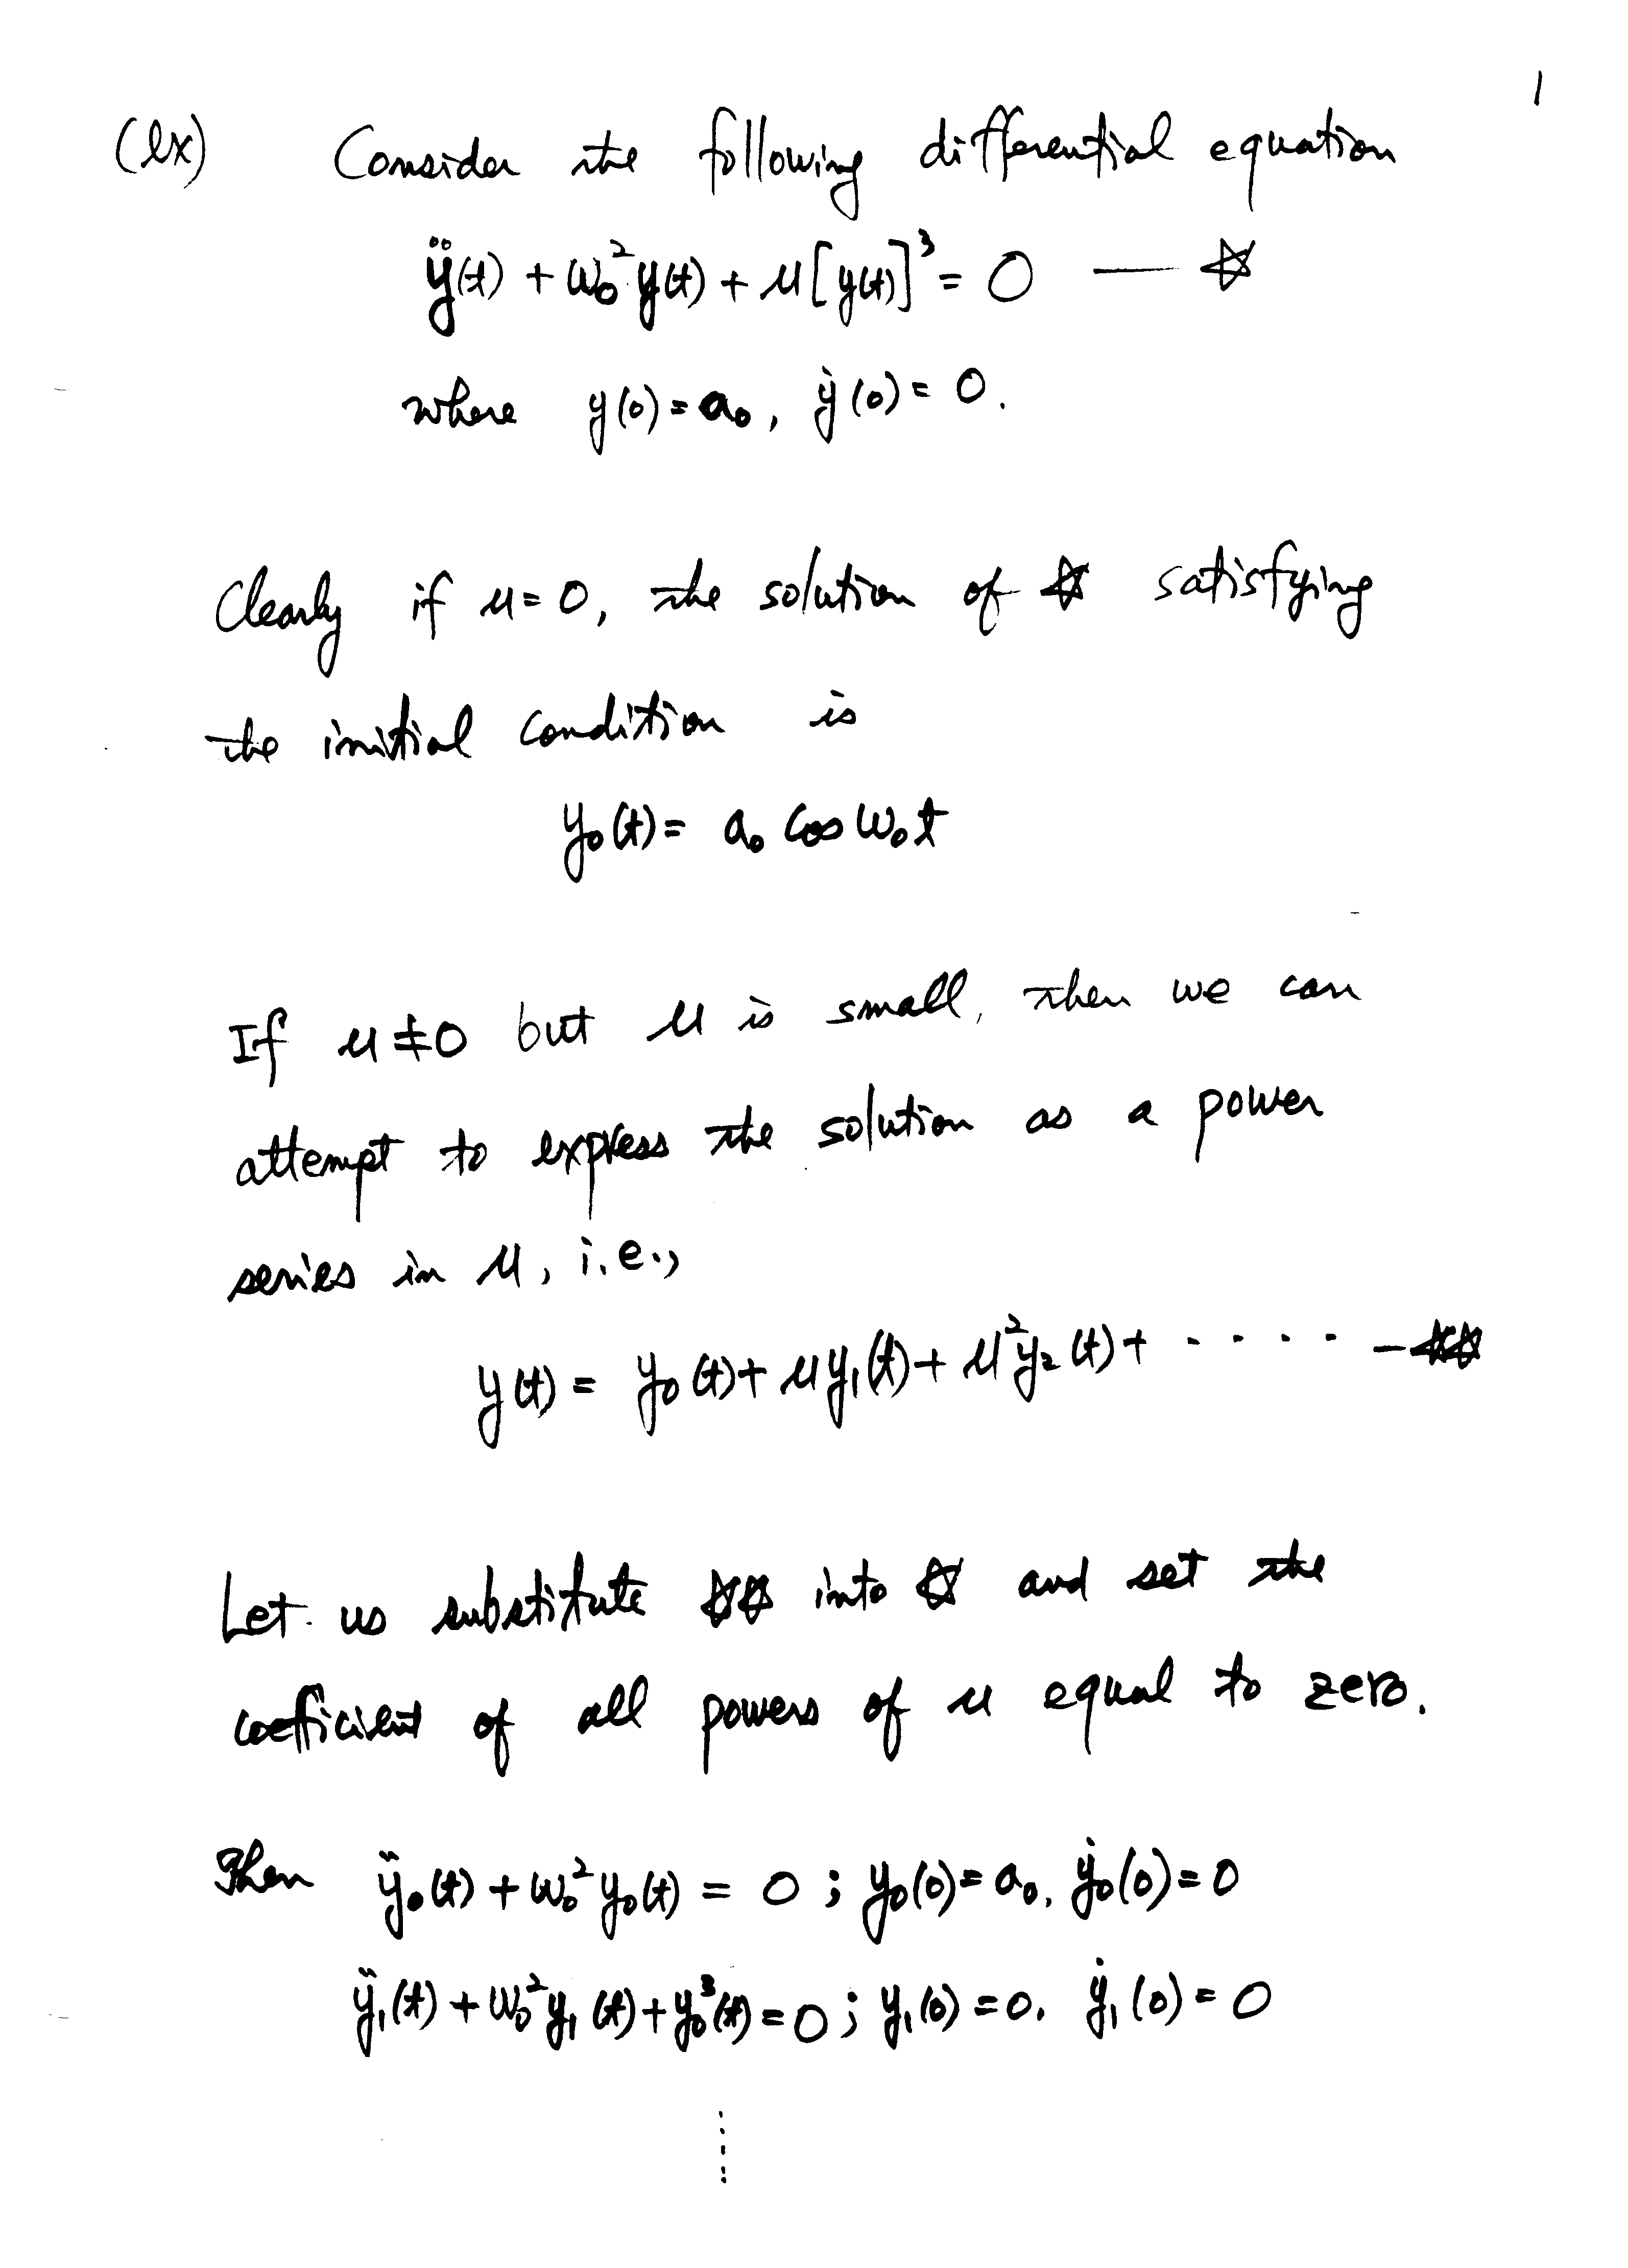 1
(ex) Consider the following differential equation
ÿ(t) + ω₀² y(t) + μ[y(t)]³ = 0 — ☆
where y(0) = a₀, ẏ(0) = 0.
Clearly if μ = 0, the solution of ☆ satisfying
the initial condition is
y₀(t) = a₀ cos ω₀t
If μ ≠ 0 but μ is small, then we can
attempt to express the solution as a power
series in μ, i.e.,
y(t) = y₀(t) + μy₁(t) + μ²y₂(t) + ····· — ☆☆
Let us substitute ☆☆ into ☆ and set the
coefficient of all powers of μ equal to zero.
Then ÿ₀(t) + ω₀² y₀(t) = 0 ; y₀(0) = a₀, ẏ₀(0) = 0
ÿ₁(t) + ω₀² y₁(t) + y₀³(t) = 0 ; y₁(0) = 0, ẏ₁(0) = 0
⋮